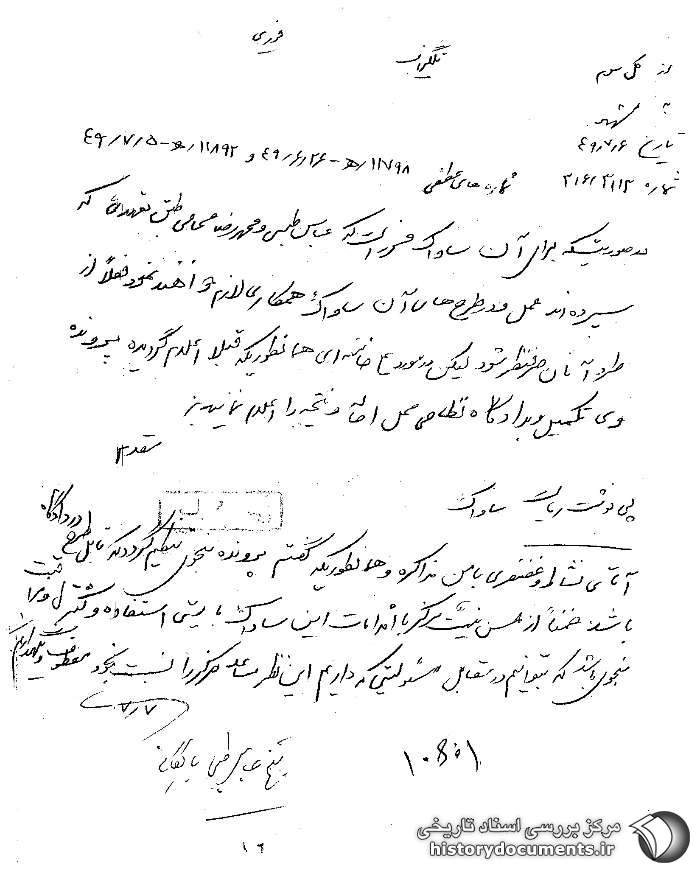 فوری
تلگراف
از کل سوم
به مشهد
تاریخ ۴۹/۷/۶
شماره ۳۱۶/۳۱۱۳
شماره های عطفی ۱۱۷۹۸/ه‍ - ۴۹/۶/۲۶ و ۱۱۸۹۲/ه‍ - ۴۹/۷/۵
در صورتیکه برای آن ساواک محرز است که عباس طبسی و محمدرضا محامی طبق تعهداتی که
سپرده اند عمل و در طرح های آن ساواک همکاری لازم خواهند نمود فعلاً از
طرد آنان صرفنظر شود لیکن در مورد خامنه ای همانطوریکه قبلا اعلام گردیده پرونده
وی تکمیل و بدادگاه نظامی محل احاله و نتیجه را اعلام نمایید
مقدم
پی نوشت ریاست ساواک
آقای نشاط و غضنفری با من مذاکره و همانطوریکه گفتم پرونده بنحوی تنظیم گردد که قابل طرح در دادگاه
باشد ضمناً از حسن نیت مرکز با اقدامات این ساواک بایستی استفاده و کنترل و مراقبت
بنحوی باشد که بتوانیم در مقابل مسئولیتی که داریم این نظر مساعد مرکز را نسبت بخود معطوف و نگهداریم
۷/۷
شیخ عباس طبسی بایگانی
۱۰۸۵۱
۱۶
مرکز بررسی اسناد تاریخی
historydocuments.ir